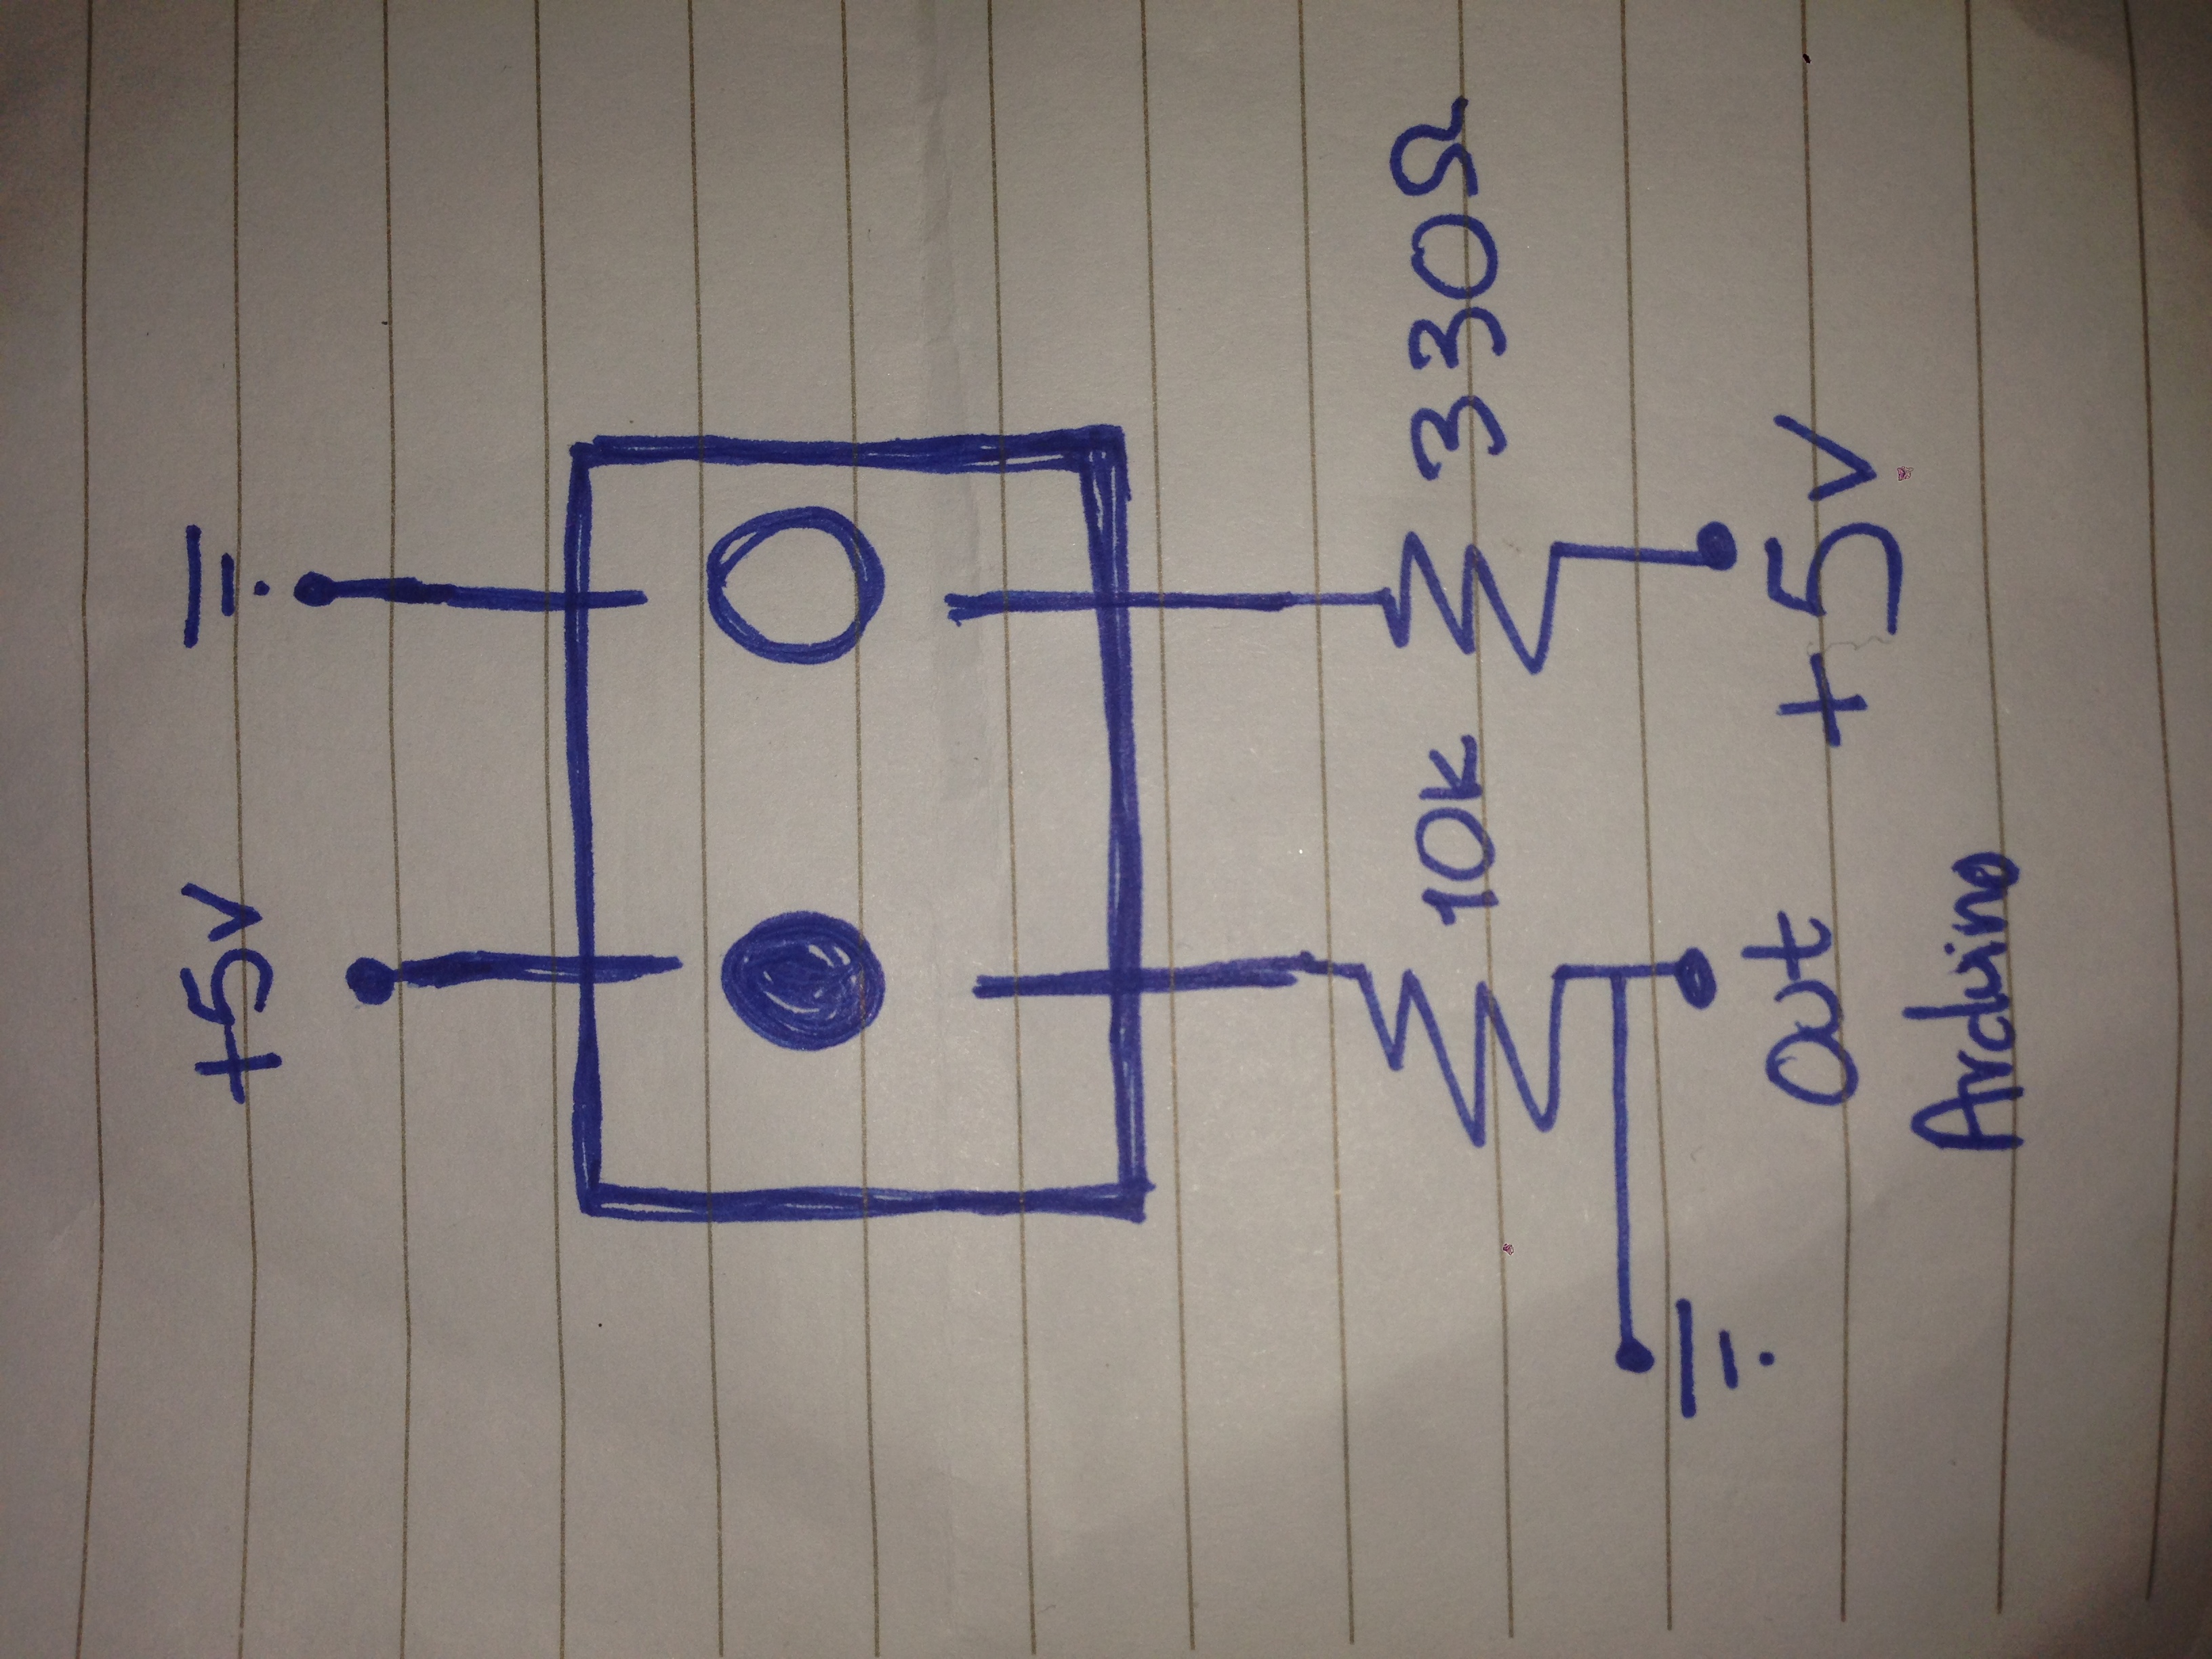 +5v
10k
330Ω
out
+5v
Arduino